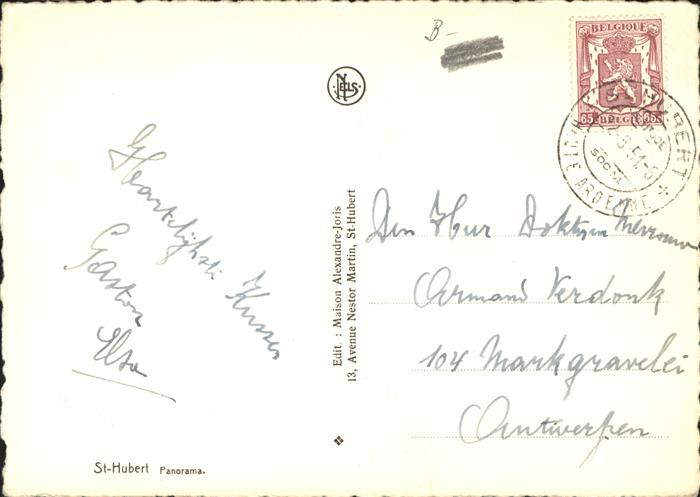 B-
BELGIQUE
65c BELGIE 65c
ST HUBERT
500M
ARDENNE
NELS
Hartelijkste Kussen
Gaston
Elsa
Edit. : Maison Alexandre-Joris
13, Avenue Nestor Martin, St-Hubert
Den Heer Doktur Mevrouw
Armand Verdonk
104 Markgravelei
Antwerpen
St-Hubert Panorama.